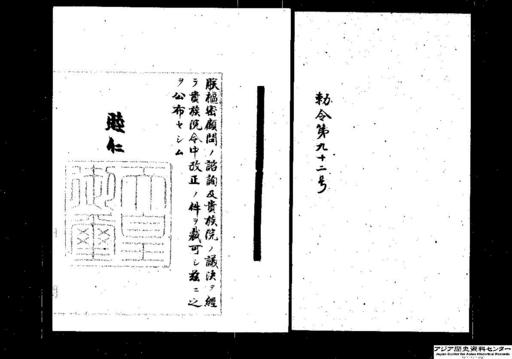 勅令第九十二号
朕樞密顧問ノ諮詢及貴族院ノ議決ヲ經
テ貴族院令中改正ノ件ヲ裁可シ茲ニ之
ヲ公布セシム
睦仁
天皇
御璽
アジア歴史資料センター
Japan Center for Asian Historical Records